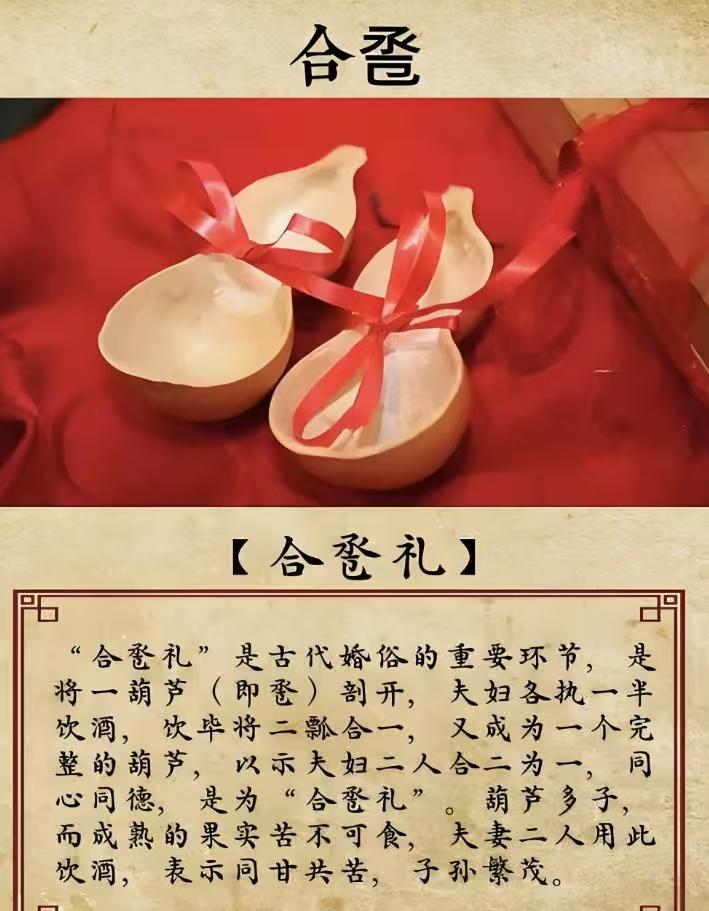 合卺
【合卺礼】
“合卺礼”是古代婚俗的重要环节，是
将一葫芦（即卺）剖开，夫妇各执一半
饮酒，饮毕将二瓢合一，又成为一个完
整的葫芦，以示夫妇二人合二为一，同
心同德，是为“合卺礼”。葫芦多子，
而成熟的果实苦不可食，夫妻二人用此
饮酒，表示同甘共苦，子孙繁茂。